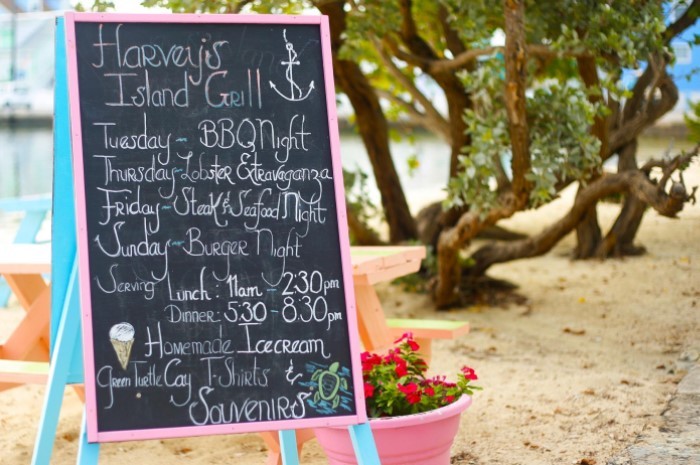 Harvey's
Island Grill
Tuesday - BBQ Night
Thursday - Lobster Extravaganza
Friday - Steak & Seafood Night
Sunday - Burger Night
Serving Lunch: 11am - 2:30pm
Dinner: 5:30 - 8:30pm
Homemade Icecream
Green Turtle Cay T-Shirts &
Souvenirs